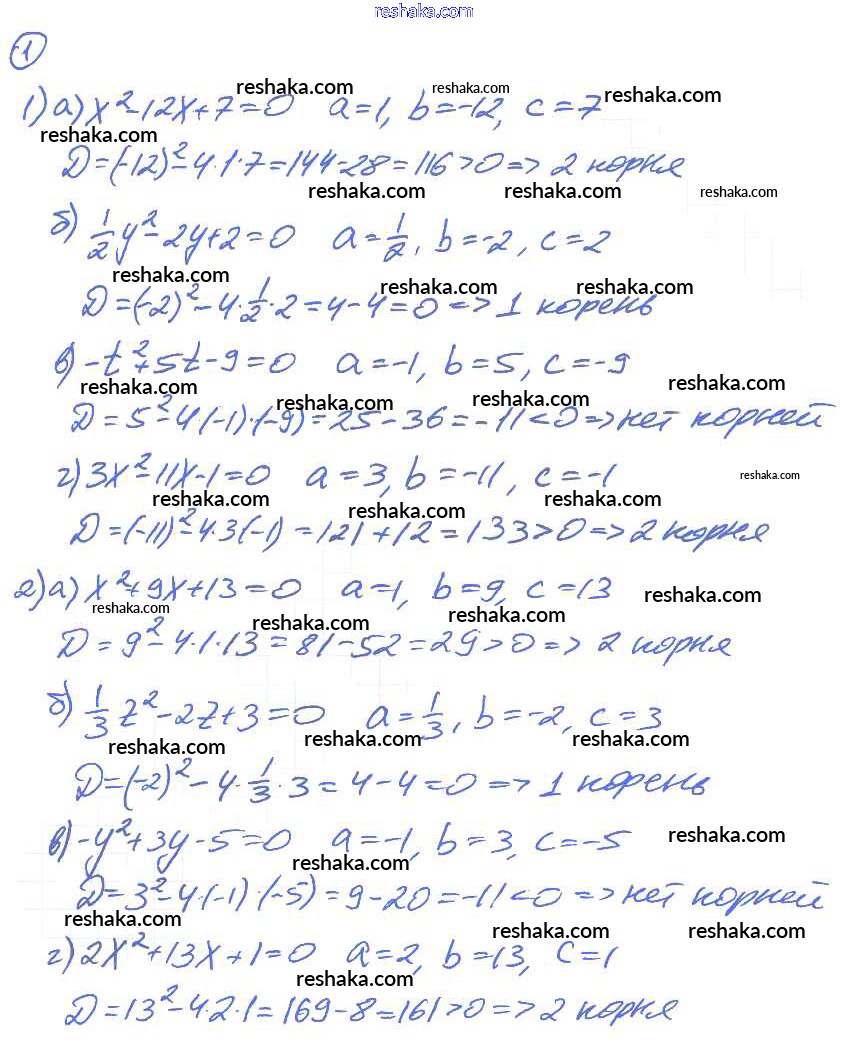 reshaka.com
1
1) а) x² - 12x + 7 = 0 a = 1, b = -12, c = 7
D = (-12)² - 4·1·7 = 144 - 28 = 116 > 0 => 2 корня
б) 1/2 y² - 2y + 2 = 0 a = 1/2, b = -2, c = 2
D = (-2)² - 4·1/2·2 = 4 - 4 = 0 => 1 корень
в) -t² + 5t - 9 = 0 a = -1, b = 5, c = -9
D = 5² - 4(-1)·(-9) = 25 - 36 = -11 < 0 => нет корней
г) 3x² - 11x - 1 = 0 a = 3, b = -11, c = -1
D = (-11)² - 4·3(-1) = 121 + 12 = 133 > 0 => 2 корня
2) а) x² + 9x + 13 = 0 a = 1, b = 9, c = 13
D = 9² - 4·1·13 = 81 - 52 = 29 > 0 => 2 корня
б) 1/3 z² - 2z + 3 = 0 a = 1/3, b = -2, c = 3
D = (-2)² - 4·1/3·3 = 4 - 4 = 0 => 1 корень
в) -y² + 3y - 5 = 0 a = -1, b = 3, c = -5
D = 3² - 4·(-1)·(-5) = 9 - 20 = -11 < 0 => нет корней
г) 2x² + 13x + 1 = 0 a = 2, b = 13, c = 1
D = 13² - 4·2·1 = 169 - 8 = 161 > 0 => 2 корня